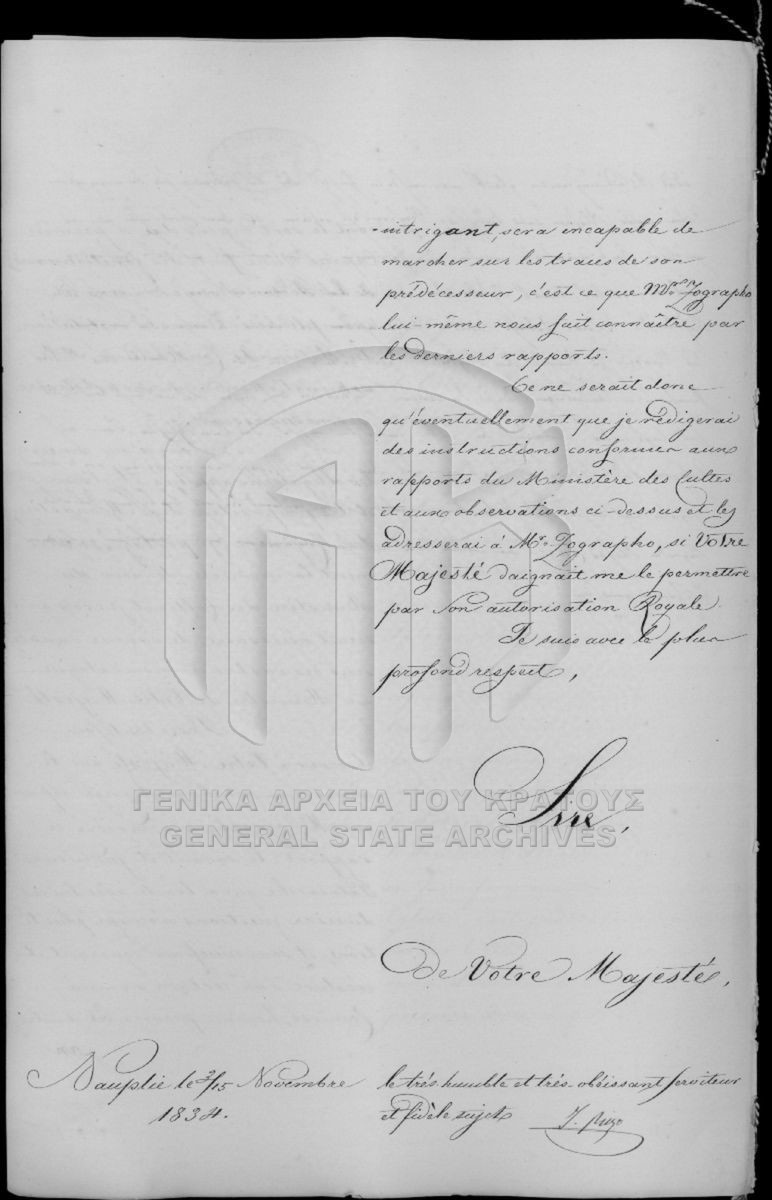 -intrigant, sera incapable de
marcher sur les traces de son
prédécesseur, c'est ce que Mr. Zographo
lui-même nous fait connaître par
les derniers rapports.
Ce ne serait donc
qu'éventuellement que je rédigerai
des instructions conformes aux
rapports du Ministère des Cultes
et aux observations ci-dessus et les
adresserai à Mr. Zographo, si Votre
Majesté daignait me le permettre
par Son autorisation Royale.
Je suis avec le plus
profond respect,
ΓΕΝΙΚΑ ΑΡΧΕΙΑ ΤΟΥ ΚΡΑΤΟΥΣ
GENERAL STATE ARCHIVES
Sire,
De Votre Majesté,
Nauplie le 3/15 Novembre
1834.
le très humble et très-obéissant serviteur
et fidèle sujet J. Rizo